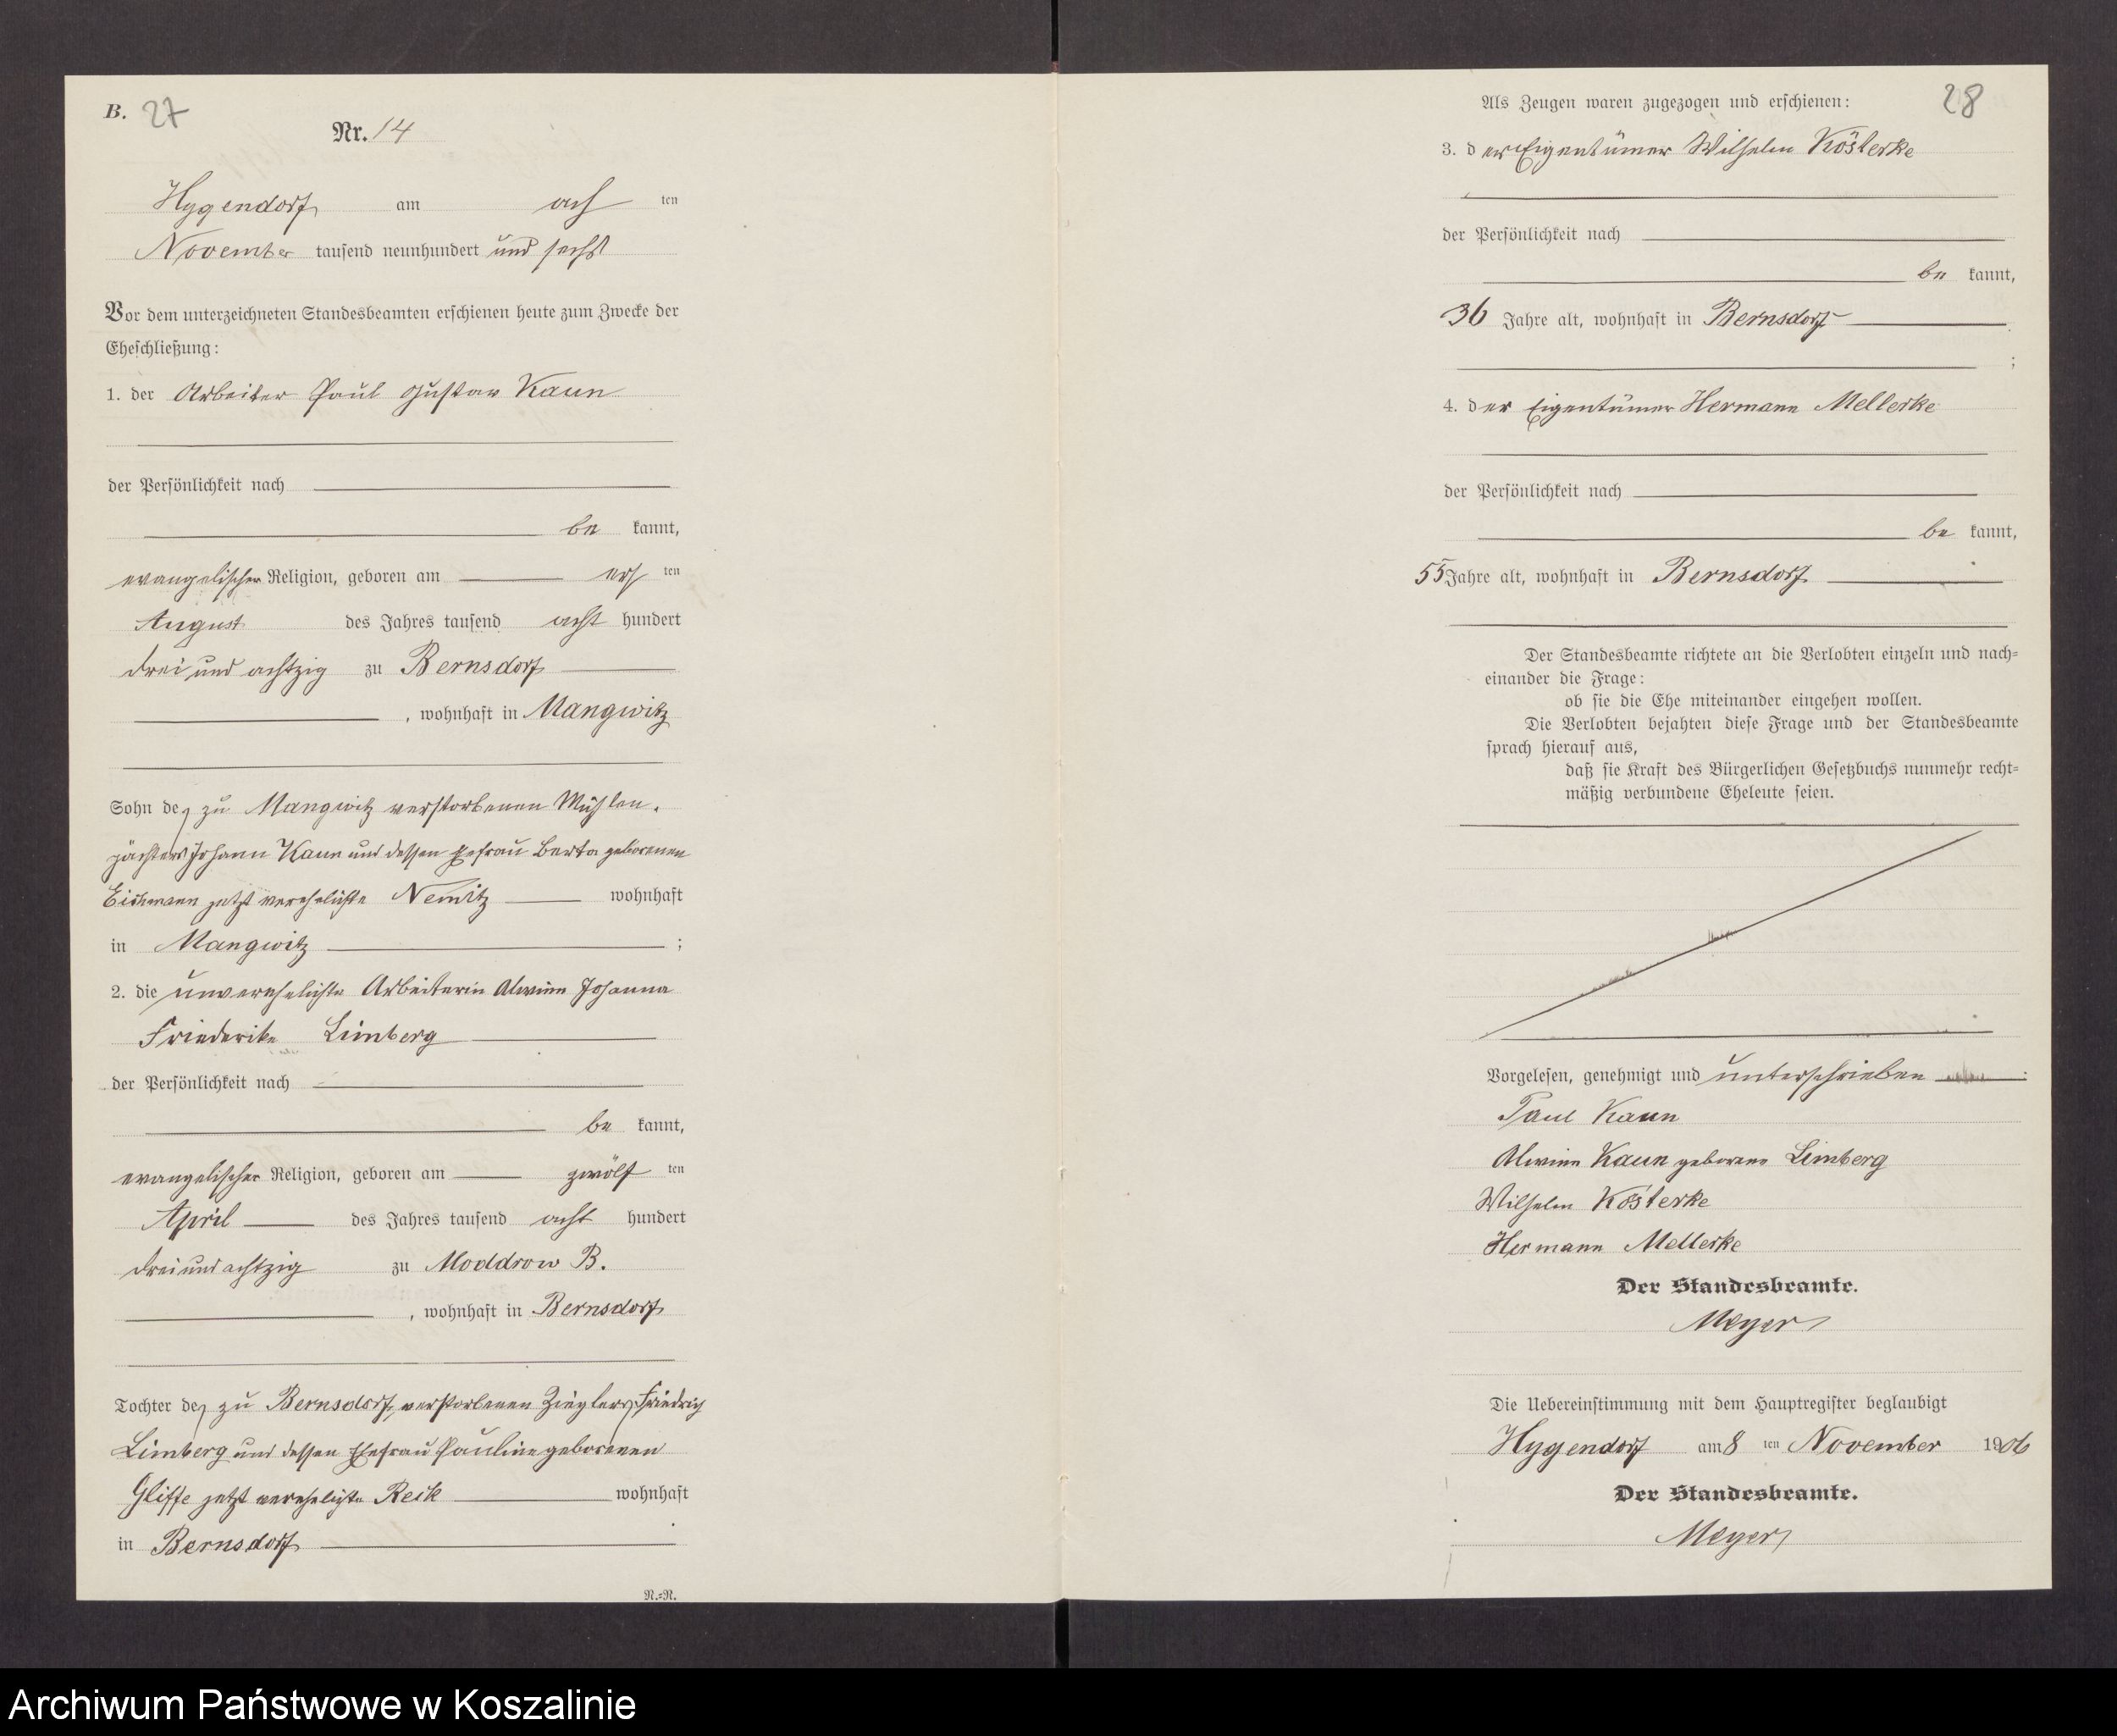 B. 27
Nr. 14
Hygendorf am ach ten
November tausend neunhundert und sechs
Vor dem unterzeichneten Standesbeamten erschienen heute zum Zwecke der
Eheschließung:
1. der Arbeiter Paul Gustav Kaun
der Persönlichkeit nach
be kannt,
evangelischer Religion, geboren am ers ten
August des Jahres tausend acht hundert
drei und achtzig zu Bernsdorf
, wohnhaft in Mangwitz
Sohn des zu Mangwitz verstorbenen Mühlen-
pächters Johann Kaun und dessen Ehefrau Berta geborenen
Eichmann jetzt verehelichte Nemitz wohnhaft
in Mangwitz ;
2. die unverehelichte Arbeiterin Alwine Johanna
Friederike Limberg
der Persönlichkeit nach
be kannt,
evangelischer Religion, geboren am zwölf ten
April des Jahres tausend acht hundert
drei und achtzig zu Moddrow B.
, wohnhaft in Bernsdorf
Tochter des zu Bernsdorf verstorbenen Zieglers Friedrich
Limberg und dessen Ehefrau Pauline geborenen
Gliffe jetzt verehelichte Reik wohnhaft
in Bernsdorf
N.=N.
28
Als Zeugen waren zugezogen und erschienen:
3. der Eigentümer Wilhelm Kösterke
der Persönlichkeit nach
be kannt,
36 Jahre alt, wohnhaft in Bernsdorf
;
4. der Eigentümer Hermann Mellerke
der Persönlichkeit nach
be kannt,
55 Jahre alt, wohnhaft in Bernsdorf
Der Standesbeamte richtete an die Verlobten einzeln und nach=
einander die Frage:
ob sie die Ehe miteinander eingehen wollen.
Die Verlobten bejahten diese Frage und der Standesbeamte
sprach hierauf aus,
daß sie Kraft des Bürgerlichen Gesetzbuchs nunmehr recht=
mäßig verbundene Eheleute seien.
Vorgelesen, genehmigt und unterschrieben :
Paul Kaun
Alwine Kaun geborene Limberg
Wilhelm Kösterke
Hermann Mellerke
Der Standesbeamte.
Meyer
Die Uebereinstimmung mit dem Hauptregister beglaubigt
Hygendorf am 8 ten November 1906
Der Standesbeamte.
Meyer
Archiwum Państwowe w Koszalinie